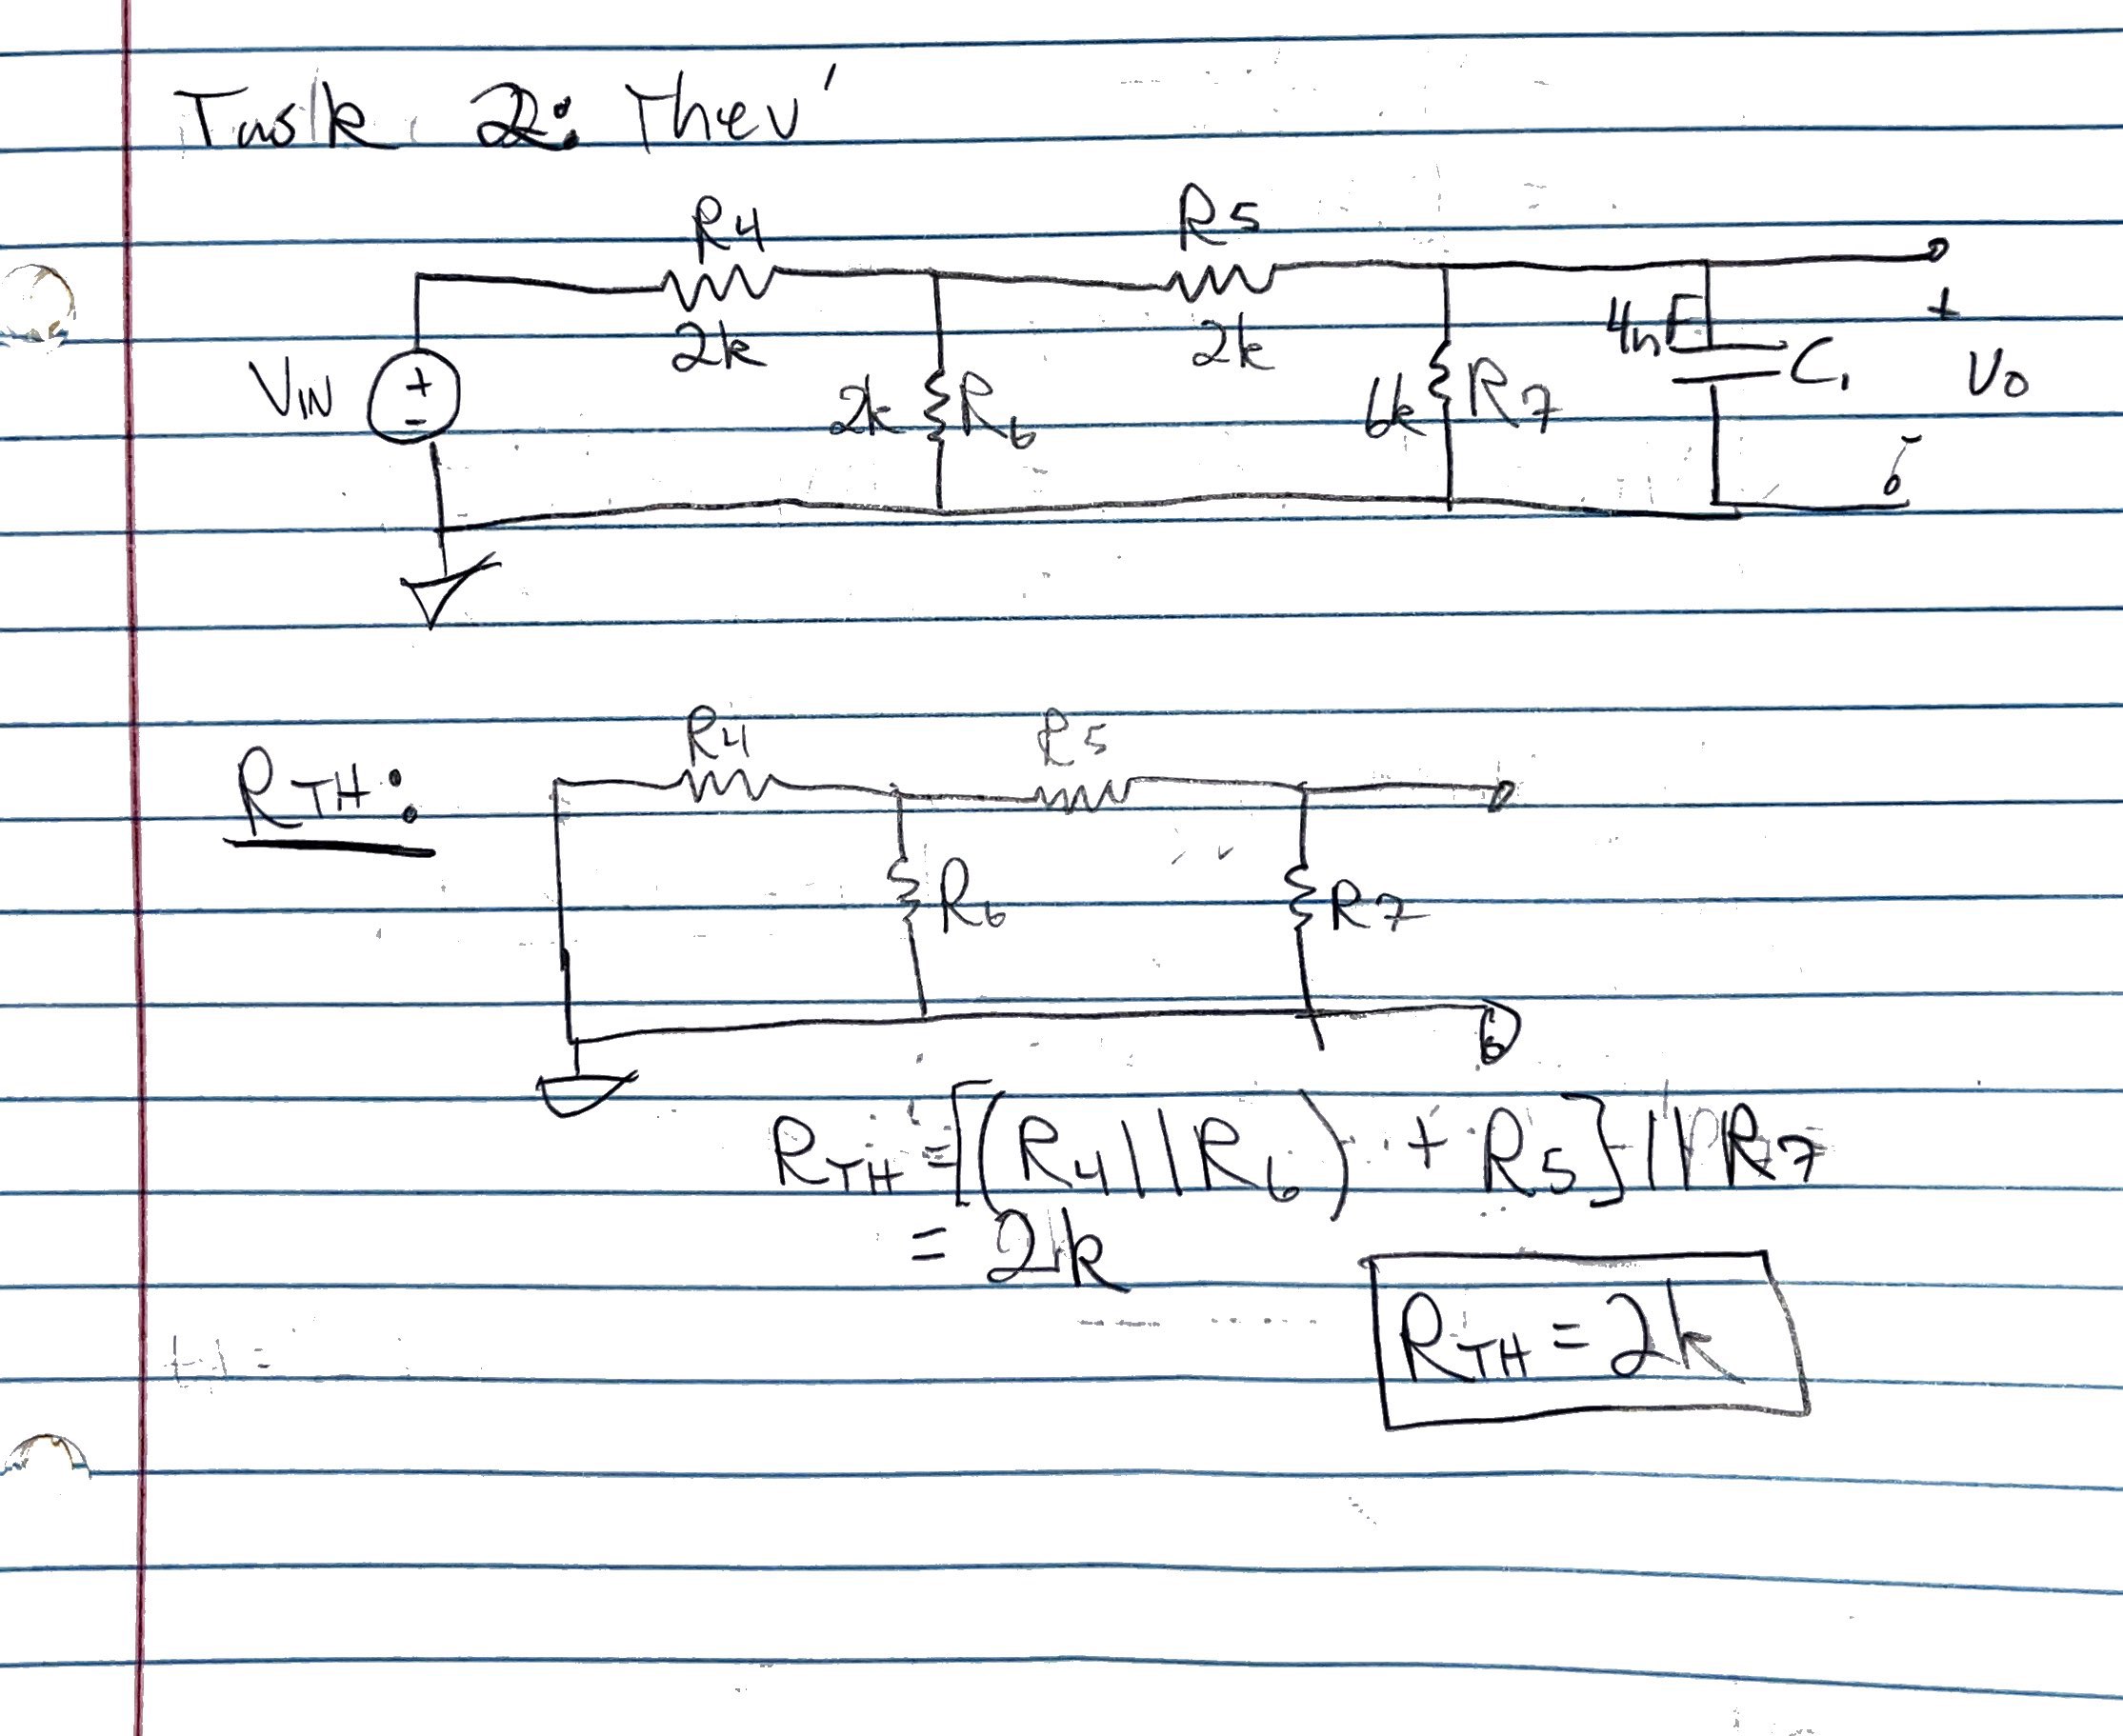 Task 2: Thev'
R4
R5
2k
2k
VIN
+
-
2k
R6
6k
R7
4nF
C1
+
Vo
-
RTH:
R4
R5
R6
R7
RTH = [(R4||R6) + R5] || R7
= 2k
RTH = 2k